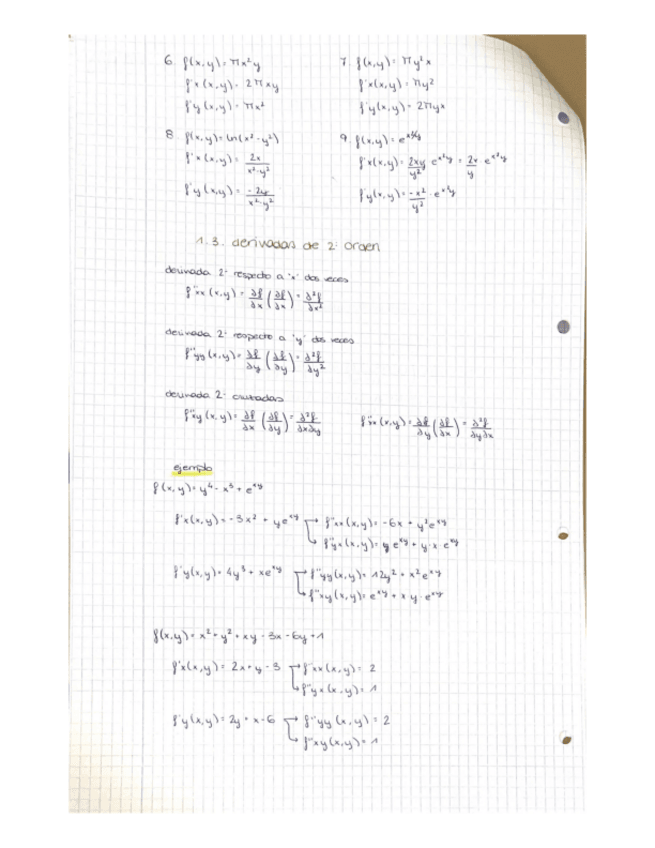 6. f(x,y) = πx²y
f'x(x,y) = 2πxy
f'y(x,y) = πx²
7. f(x,y) = πy²x
f'x(x,y) = πy²
f'y(x,y) = 2πyx
8. f(x,y) = ln(x²-y²)
f'x(x,y) = 2x / x²-y²
f'y(x,y) = -2y / x²-y²
9. f(x,y) = e^x²/y
f'x(x,y) = 2xy / y² · e^x²/y = 2x / y · e^x²/y
f'y(x,y) = -x² / y² · e^x²/y
1.3. derivadas de 2ª orden
derivada 2ª respecto a 'x' dos veces
f''xx(x,y) = ∂f/∂x (∂f/∂x) = ∂²f/∂x²
derivada 2ª respecto a 'y' dos veces
f''yy(x,y) = ∂f/∂y (∂f/∂y) = ∂²f/∂y²
derivada 2ª cruzadas
f''xy(x,y) = ∂f/∂x (∂f/∂y) = ∂²f/∂x∂y
(x,y) = ∂f/∂y (∂f/∂x) = ∂²f/∂y∂x
ejemplo
f(x,y) = y⁴ - x³ + e^xy
f'x(x,y) = -3x² + ye^xy → f''xx(x,y) = -6x + y²e^xy
↳ f''yx(x,y) = e^xy + y·x·e^xy
f'y(x,y) = 4y³ + xe^xy → f''yy(x,y) = 12y² + x²e^xy
↳ f''xy(x,y) = e^xy + xy·e^xy
f(x,y) = x² + y² + xy - 3x - 6y + 1
f'x(x,y) = 2x + y - 3 → f''xx(x,y) = 2
↳ f''yx(x,y) = 1
f'y(x,y) = 2y + x - 6 → f''yy(x,y) = 2
↳ f''xy(x,y) = 1